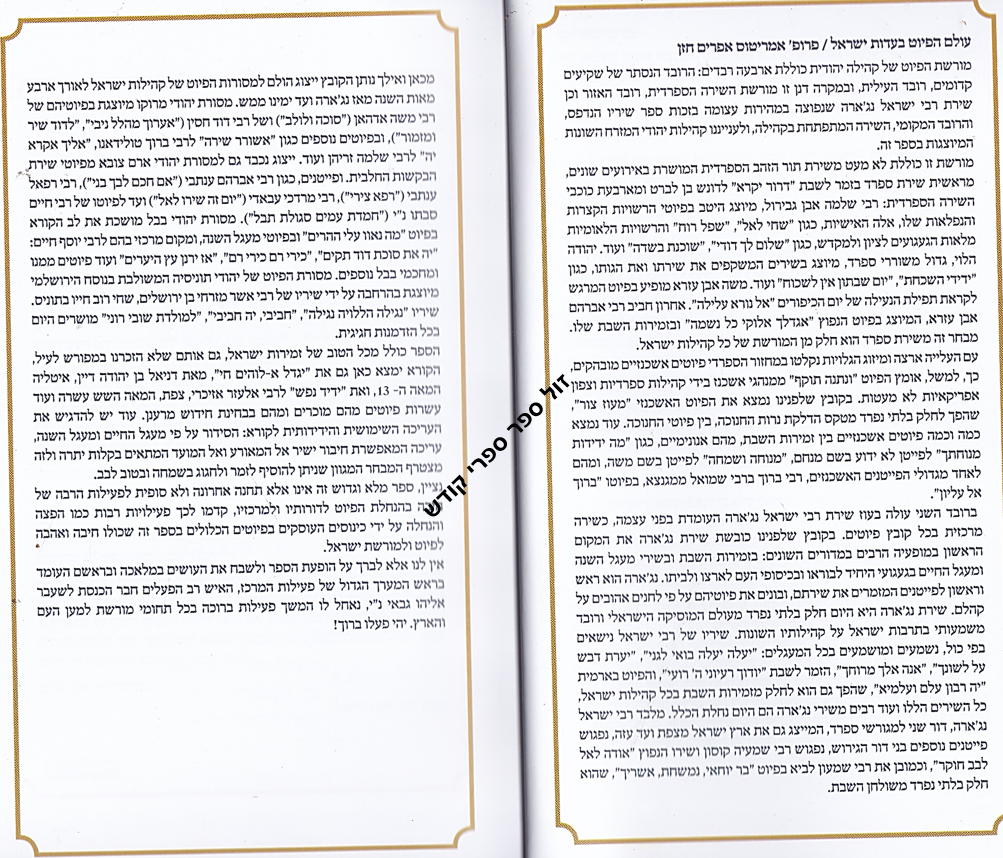 עולם הפיוט בעדות ישראל / פרופ' אמריטוס אפרים חזן
מורשת הפיוט של קהילה יהודית כוללת ארבעה רבדים: הרובד הנסתר של שקיעים
קדומים, רובד העילית, ובמקרה דנן זו מורשת השירה הספרדית, רובד האזור וכן
שירת רבי ישראל נג'ארה שנפוצה במהירות עצומה בזכות ספר שיריו הנדפס,
והרובד המקומי, השירה המתפתחת בקהילה, ולענייננו קהילות יהודי המזרח השונות
המיוצגות בספר זה.
מורשת זו כוללת לא מעט משירת תור הזהב הספרדית המושרת באירועים שונים,
מראשית שירת ספרד בזמר לשבת "דרור יקרא" לדונש בן לברט ומארבעת כוכבי
השירה הספרדית: רבי שלמה אבן גבירול, מיוצג היטב בפיוטי הרשויות הקצרות
והנפלאות שלו, אלה האישיות, כגון "שחי לאל", "שפל רוח" והרשויות הלאומיות
מלאות הגעגועים לציון ולמקדש, כגון "שלום לך דודי", "שוכנת בשדה" ועוד. יהודה
הלוי, גדול משוררי ספרד, מיוצג בשירים המשקפים את שירתו ואת הגותו, כגון
"ידידי השכחת", "יום שבתון אין לשכוח" ועוד. משה אבן עזרא מופיע בפיוט המרגש
לקראת תפילת הנעילה של יום הכיפורים "אל נורא עלילה". אחרון חביב רבי אברהם
אבן עזרא, המיוצג בפיוט הנפוץ "אגדלך אלוקי כל נשמה" ובזמירות השבת שלו.
מבחר זה משירת ספרד הוא חלק מן המורשת של כל קהילות ישראל.
עם העלייה ארצה ומיזוג הגלויות נקלטו במחזור הספרדי פיוטים אשכנזיים מובהקים.
כך, למשל, אומץ הפיוט "ונתנה תוקף" ממנהגי אשכנז בידי קהילות ספרדיות וצפון
אפריקאיות לא מעטות. בקובץ שלפנינו נמצא את הפיוט האשכנזי "מעוז צור",
שהפך לחלק בלתי נפרד מטקס הדלקת נרות החנוכה, בין פיוטי החנוכה. עוד נמצא
כמה וכמה פיוטים אשכנזיים בין זמירות השבת, מהם אנונימיים, כגון "מה ידידות
מנוחתך" לפייטן לא ידוע בשם מנחם, "מנוחה ושמחה" לפייטן בשם משה, ומהם
לאחד מגדולי הפייטנים האשכנזים, רבי ברוך ברבי שמואל ממגנצא, בפיוטו "ברוך
אל עליון".
ברובד השני עולה בעוז שירת רבי ישראל נג'ארה העומדת בפני עצמה, כשירה
מרכזית בכל קובץ פיוטים. בקובץ שלפנינו כובשת שירת נג'ארה את המקום
הראשון במופעיה הרבים במדורים השונים: בזמירות השבת ובשירי מעגל השנה
ומעגל החיים בגעגועי היחיד לבוראו ובכיסופי העם לארצו ולביתו. נג'ארה הוא ראש
וראשון לפייטנים המזמרים את שירתם, ובונים את פיוטיהם על פי לחנים אהובים על
קהלם. שירת נג'ארה היא היום חלק בלתי נפרד מעולם המוסיקה הישראלי ורובד
משמעותי בתרבות ישראל על קהילותיו השונות. שיריו של רבי ישראל נישאים
בפי כול, נשמעים ומושמעים בכל המעגלים: "יעלה יעלה בואי לגני", "יערת דבש
על לשונך", "אנה אלך מרוחך", הזמר לשבת "יודוך רעיוני ה' רועי", והפיוט בארמית
"יה רבון עלם ועלמיא", שהפך גם הוא לחלק מזמירות השבת בכל קהילות ישראל,
כל השירים הללו ועוד רבים משירי נג'ארה הם היום נחלת הכלל. מלבד רבי ישראל
נג'ארה, דור שני למגורשי ספרד, המייצג גם את ארץ ישראל מצפת ועד עזה, נפגוש
פייטנים נוספים בני דור הגירוש, נפגוש רבי שמעיה קוסון ושירו הנפוץ "אודה לאל
לבב חוקר", וכמובן את רבי שמעון לביא בפיוט "בר יוחאי, נמשחת, אשריך", שהוא
חלק בלתי נפרד משולחן השבת.
מכאן ואילך נותן הקובץ ייצוג הולם למסורות הפיוט של קהילות ישראל לאורך ארבע
מאות השנה מאז נג'ארה ועד ימינו ממש. מסורת יהודי מרוקו מיוצגת בפיוטיהם של
רבי משה אדהאן ("סוכה ולולב") ושל רבי דוד חסין ("אערוך מהלל ניבי", "לדוד שיר
ומזמור"), ובפיוטים נוספים כגון "אשורר שירה" לרבי ברוך טולידאנו, "אליך אקרא
יה" לרבי שלמה זריהן ועוד. ייצוג נכבד גם למסורת יהודי ארם צובא מפיוטי שירת
הבקשות החלבית. ופייטנים, כגון רבי אברהם ענתבי ("אם חכם לבך בני"), רבי רפאל
ענתבי ("רפא צירי"), רבי מרדכי עבאדי ("יום זה שירו לאל") ועד לפיוטו של רבי חיים
סבתו נ"י ("חמדת עמים סגולת תבל"). מסורת יהודי בבל מושכת את לב הקורא
בפיוט "מה נאוו עלי ההרים" ובפיוטי מעגל השנה, ומקום מרכזי בהם לרבי יוסף חיים:
"יה את סוכת דוד תקים", "כירי רם כירי רם", "אז ירנן עץ היערים" ועוד פיוטים ממנו
ומחכמי בבל נוספים. מסורת הפיוט של יהודי תוניסיה המשולבת בנוסח הירושלמי
מיוצגת בהרחבה על ידי שיריו של רבי אשר מזרחי בן ירושלים, שחי רוב חייו בתוניס.
שיריו "נגילה הללויה נגילה", "חביבי, יה חביבי", "למולדת שובי רוני" מושרים היום
בכל הזדמנות חגיגית.
הספר כולל מכל הטוב של זמירות ישראל, גם אותם שלא הזכרנו במפורש לעיל,
הקורא ימצא כאן גם את "יגדל א-לוהים חי", מאת דניאל בן יהודה דיין, איטליה
המאה ה- 13, ואת "ידיד נפש" לרבי אלעזר אזיכרי, צפת, המאה השש עשרה ועוד
עשרות פיוטים מהם מוכרים ומהם בבחינת חידוש מרענן. עוד יש להדגיש את
העריכה השימושית והידידותית לקורא: הסידור על פי מעגל החיים ומעגל השנה,
עריכה המאפשרת חיבור ישיר אל המאורע ואל המועד המתאים בקלות יתרה ולזה
מצטרף המבחר המגוון שניתן להוסיף לזמר ולחגוג בשמחה ובטוב לבב.
נציין, ספר מלא וגדוש זה אינו אלא תחנה אחרונה ולא סופית לפעילות הרבה של
בהנחלת הפיוט לדורותיו ולמרכזיו, קדמו לכך פעילויות רבות כמו הפצה
והנחלה על ידי כינוסים העוסקים בפיוטים הכלולים בספר זה שכולו חיבה ואהבה
לפיוט ולמורשת ישראל.
אין לנו אלא לברך על הופעת הספר ולשבח את העושים במלאכה ובראשם העומד
בראש המערך הגדול של פעילות המרכז, האיש רב הפעלים חבר הכנסת לשעבר
אליהו גבאי נ"י, נאחל לו המשך פעילות ברוכה בכל תחומי מורשת למען העם
והארץ. יהי פעלו ברוך!
זול ספר ספרי קודש